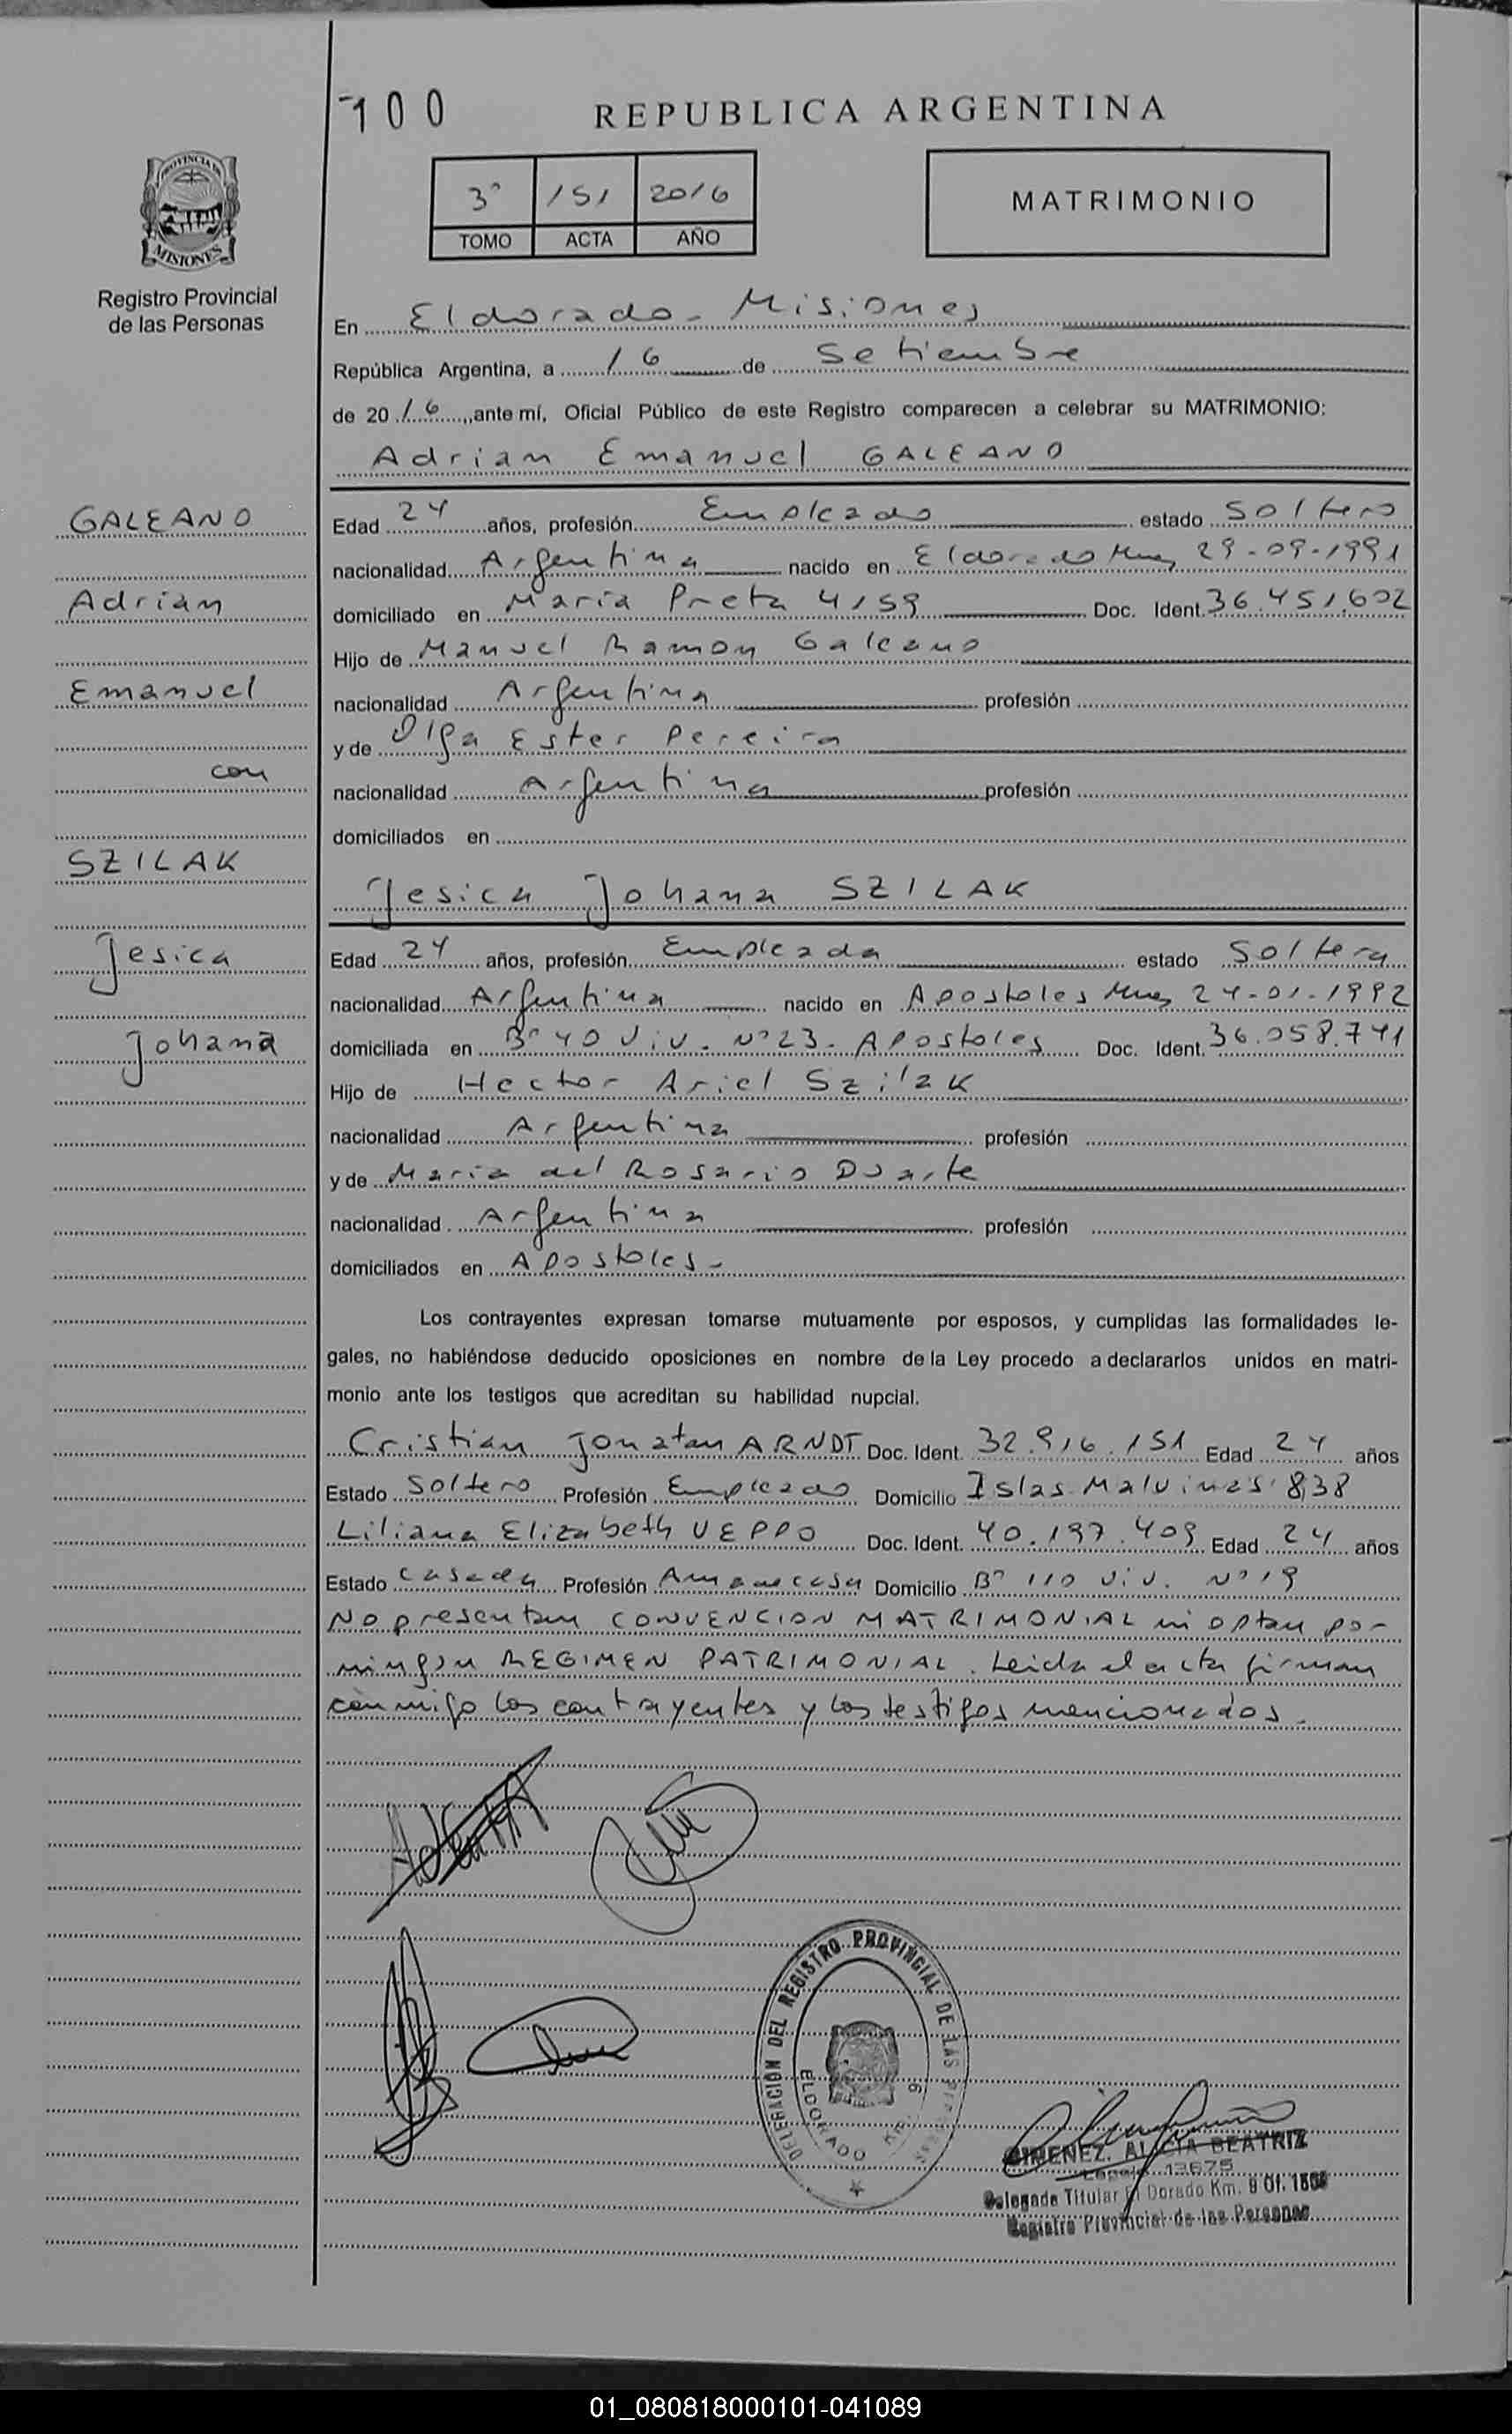 100
REPUBLICA ARGENTINA
3° 151 2016
TOMO ACTA AÑO
MATRIMONIO
PROVINCIA DE
MISIONES
Registro Provincial
de las Personas
En Eldorado - Misiones
República Argentina, a 16 de Setiembre
de 2016, ante mí, Oficial Público de este Registro comparecen a celebrar su MATRIMONIO:
Adrian Emanuel GALEANO
GALEANO
Adrian
Emanuel
con
SZILAK
Jesica
Johana
Edad 24 años, profesión Empleado estado Soltero
nacionalidad Argentina nacido en Eldorado Mnes 29-09-1991
domiciliado en Maria Preta 4159 Doc. Ident. 36.451.602
Hijo de Manuel Ramon Galeano
nacionalidad Argentina profesión
y de Olga Ester Pereira
nacionalidad Argentina profesión
domiciliados en
Jesica Johana SZILAK
Edad 24 años, profesión Empleada estado Soltera
nacionalidad Argentina nacido en Apostoles Mnes 24-01-1992
domiciliada en B° 40 Viv. N° 23 - Apostoles Doc. Ident. 36.058.741
Hijo de Hector Ariel Szilak
nacionalidad Argentina profesión
y de Maria del Rosario Duarte
nacionalidad Argentina profesión
domiciliados en Apostoles -
Los contrayentes expresan tomarse mutuamente por esposos, y cumplidas las formalidades le-
gales, no habiéndose deducido oposiciones en nombre de la Ley procedo a declararlos unidos en matri-
monio ante los testigos que acreditan su habilidad nupcial.
Cristian Jonatan ARNDT Doc. Ident. 32.916.151 Edad 24 años
Estado Soltero Profesión Empleado Domicilio Islas Malvinas 838
Liliana Elizabeth UEPPO Doc. Ident. 40.197.409 Edad 24 años
Estado Casada Profesión Ama de casa Domicilio B° 110 Viv. N° 19
No presentan CONVENCION MATRIMONIAL ni optan por
ningun REGIMEN PATRIMONIAL. Leida el acta firman
conmigo los contrayentes y los testigos mencionados -
DELEGACION DEL REGISTRO PROVINCIAL DE LAS PERSONAS
ELDORADO KM. 9
GIMENEZ, ALICIA BEATRIZ
Legajo 13675
Delegada Titular El Dorado Km. 9 Of. 1504
Registro Provincial de las Personas
01_080818000101-041089